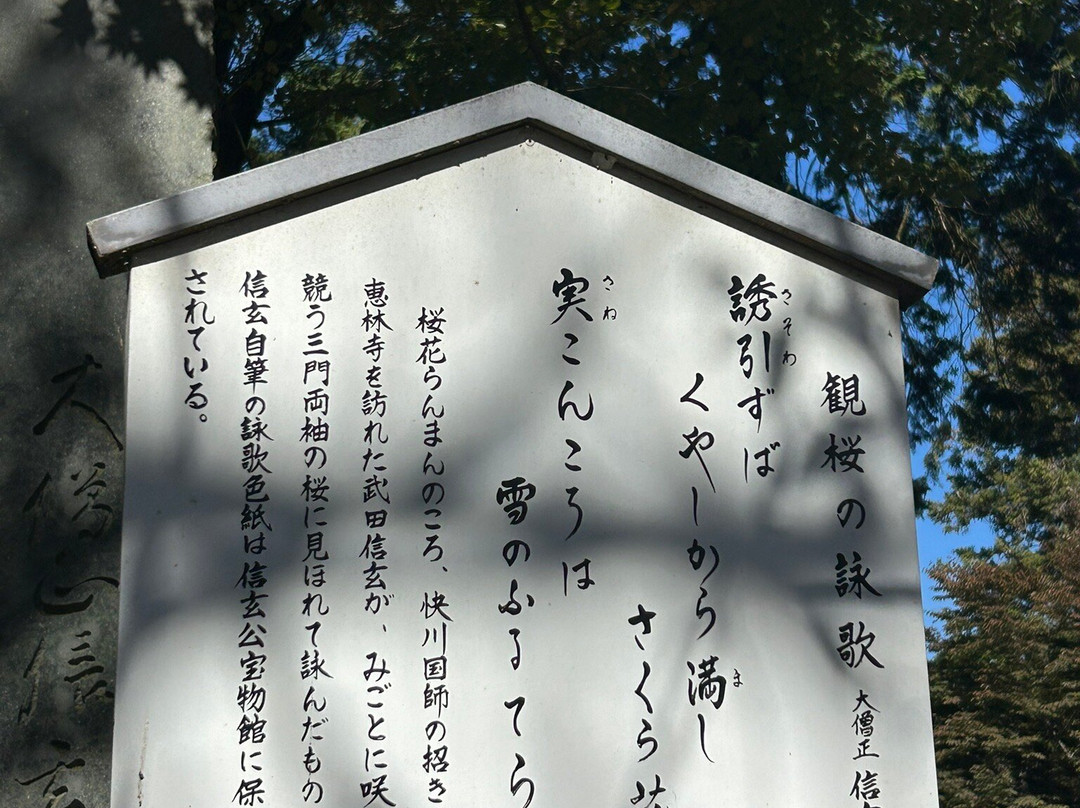 観桜の詠歌 大僧正 信
さそわ
誘引ずば
ま
くやしから満し
さくら
さね
実こんころは
雪のふるてら
桜花らんまんのころ、快川国師の招き
恵林寺を訪れた武田信玄が、みごとに咲
競う三門両袖の桜に見ほれて詠んだもの
信玄自筆の詠歌色紙は信玄公宝物館に保
されている。
大僧正信玄